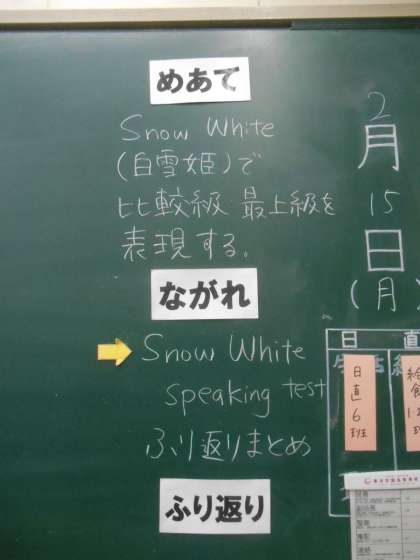 めあて
Snow White
(白雪姫)で
比較級 最上級を
表現する。
ながれ
Snow White
speaking test
ふり返りまとめ
ふり返り
2
月
15
日
(月)
日 直
日直6班